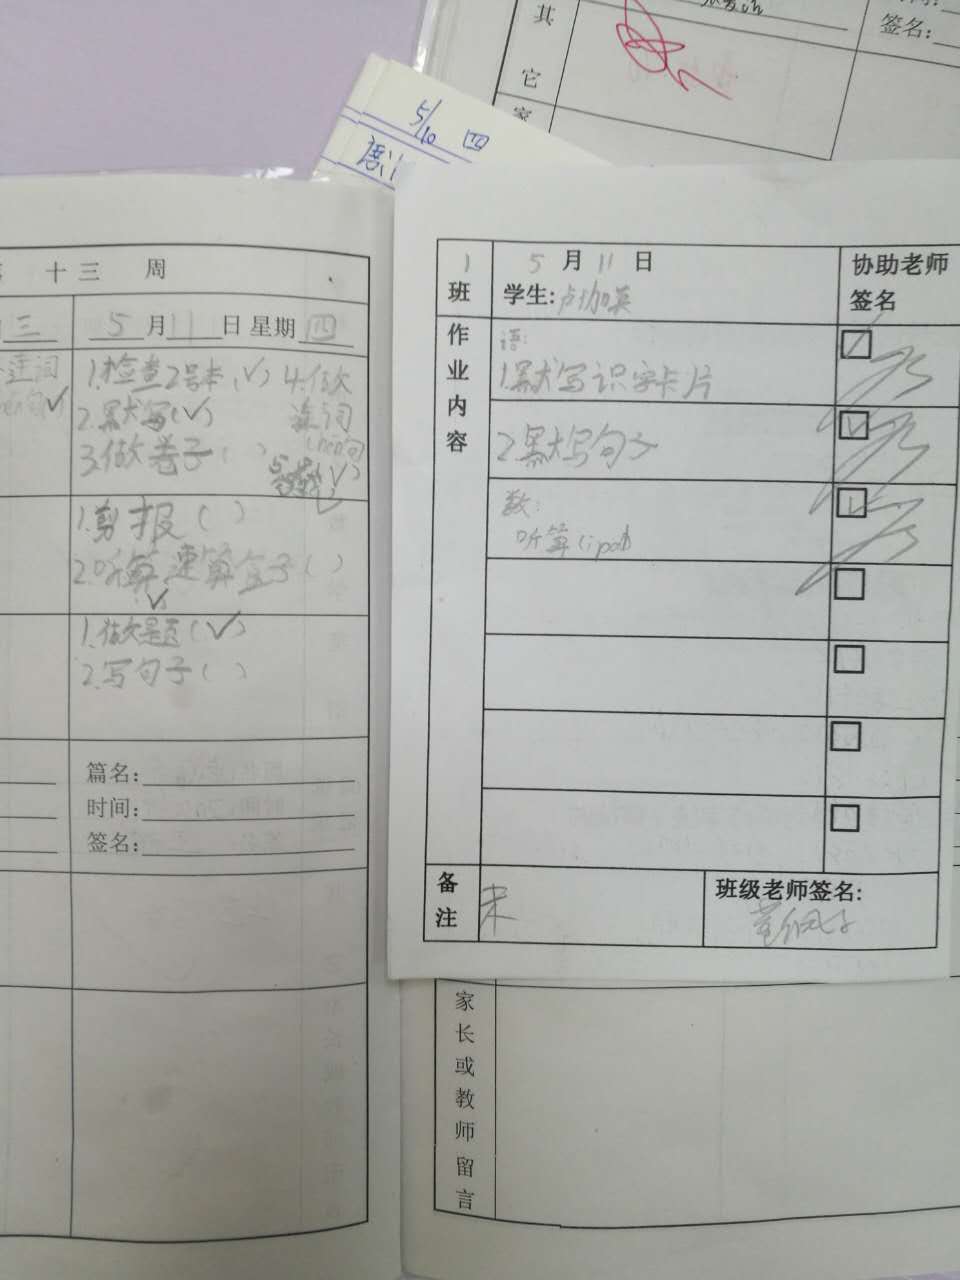 其
它
签名:
5/10 四
十三 周
三 5月11日 星期四
连词
1.检查2号本(√) 4.做欠
2.默写(√) 连词
3.做卷子( )
1.剪报( )
2.听算 速算盒子( )
√
1.做欠题(√)
2.写句子( )
篇名:
时间:
签名:
1班
5月11日
学生:
协助老师
签名
作业内容
语:
1.默写识字卡片
2.默写句子
数:
听算(ipad)
备注
未
班级老师签名:
家长或教师留言